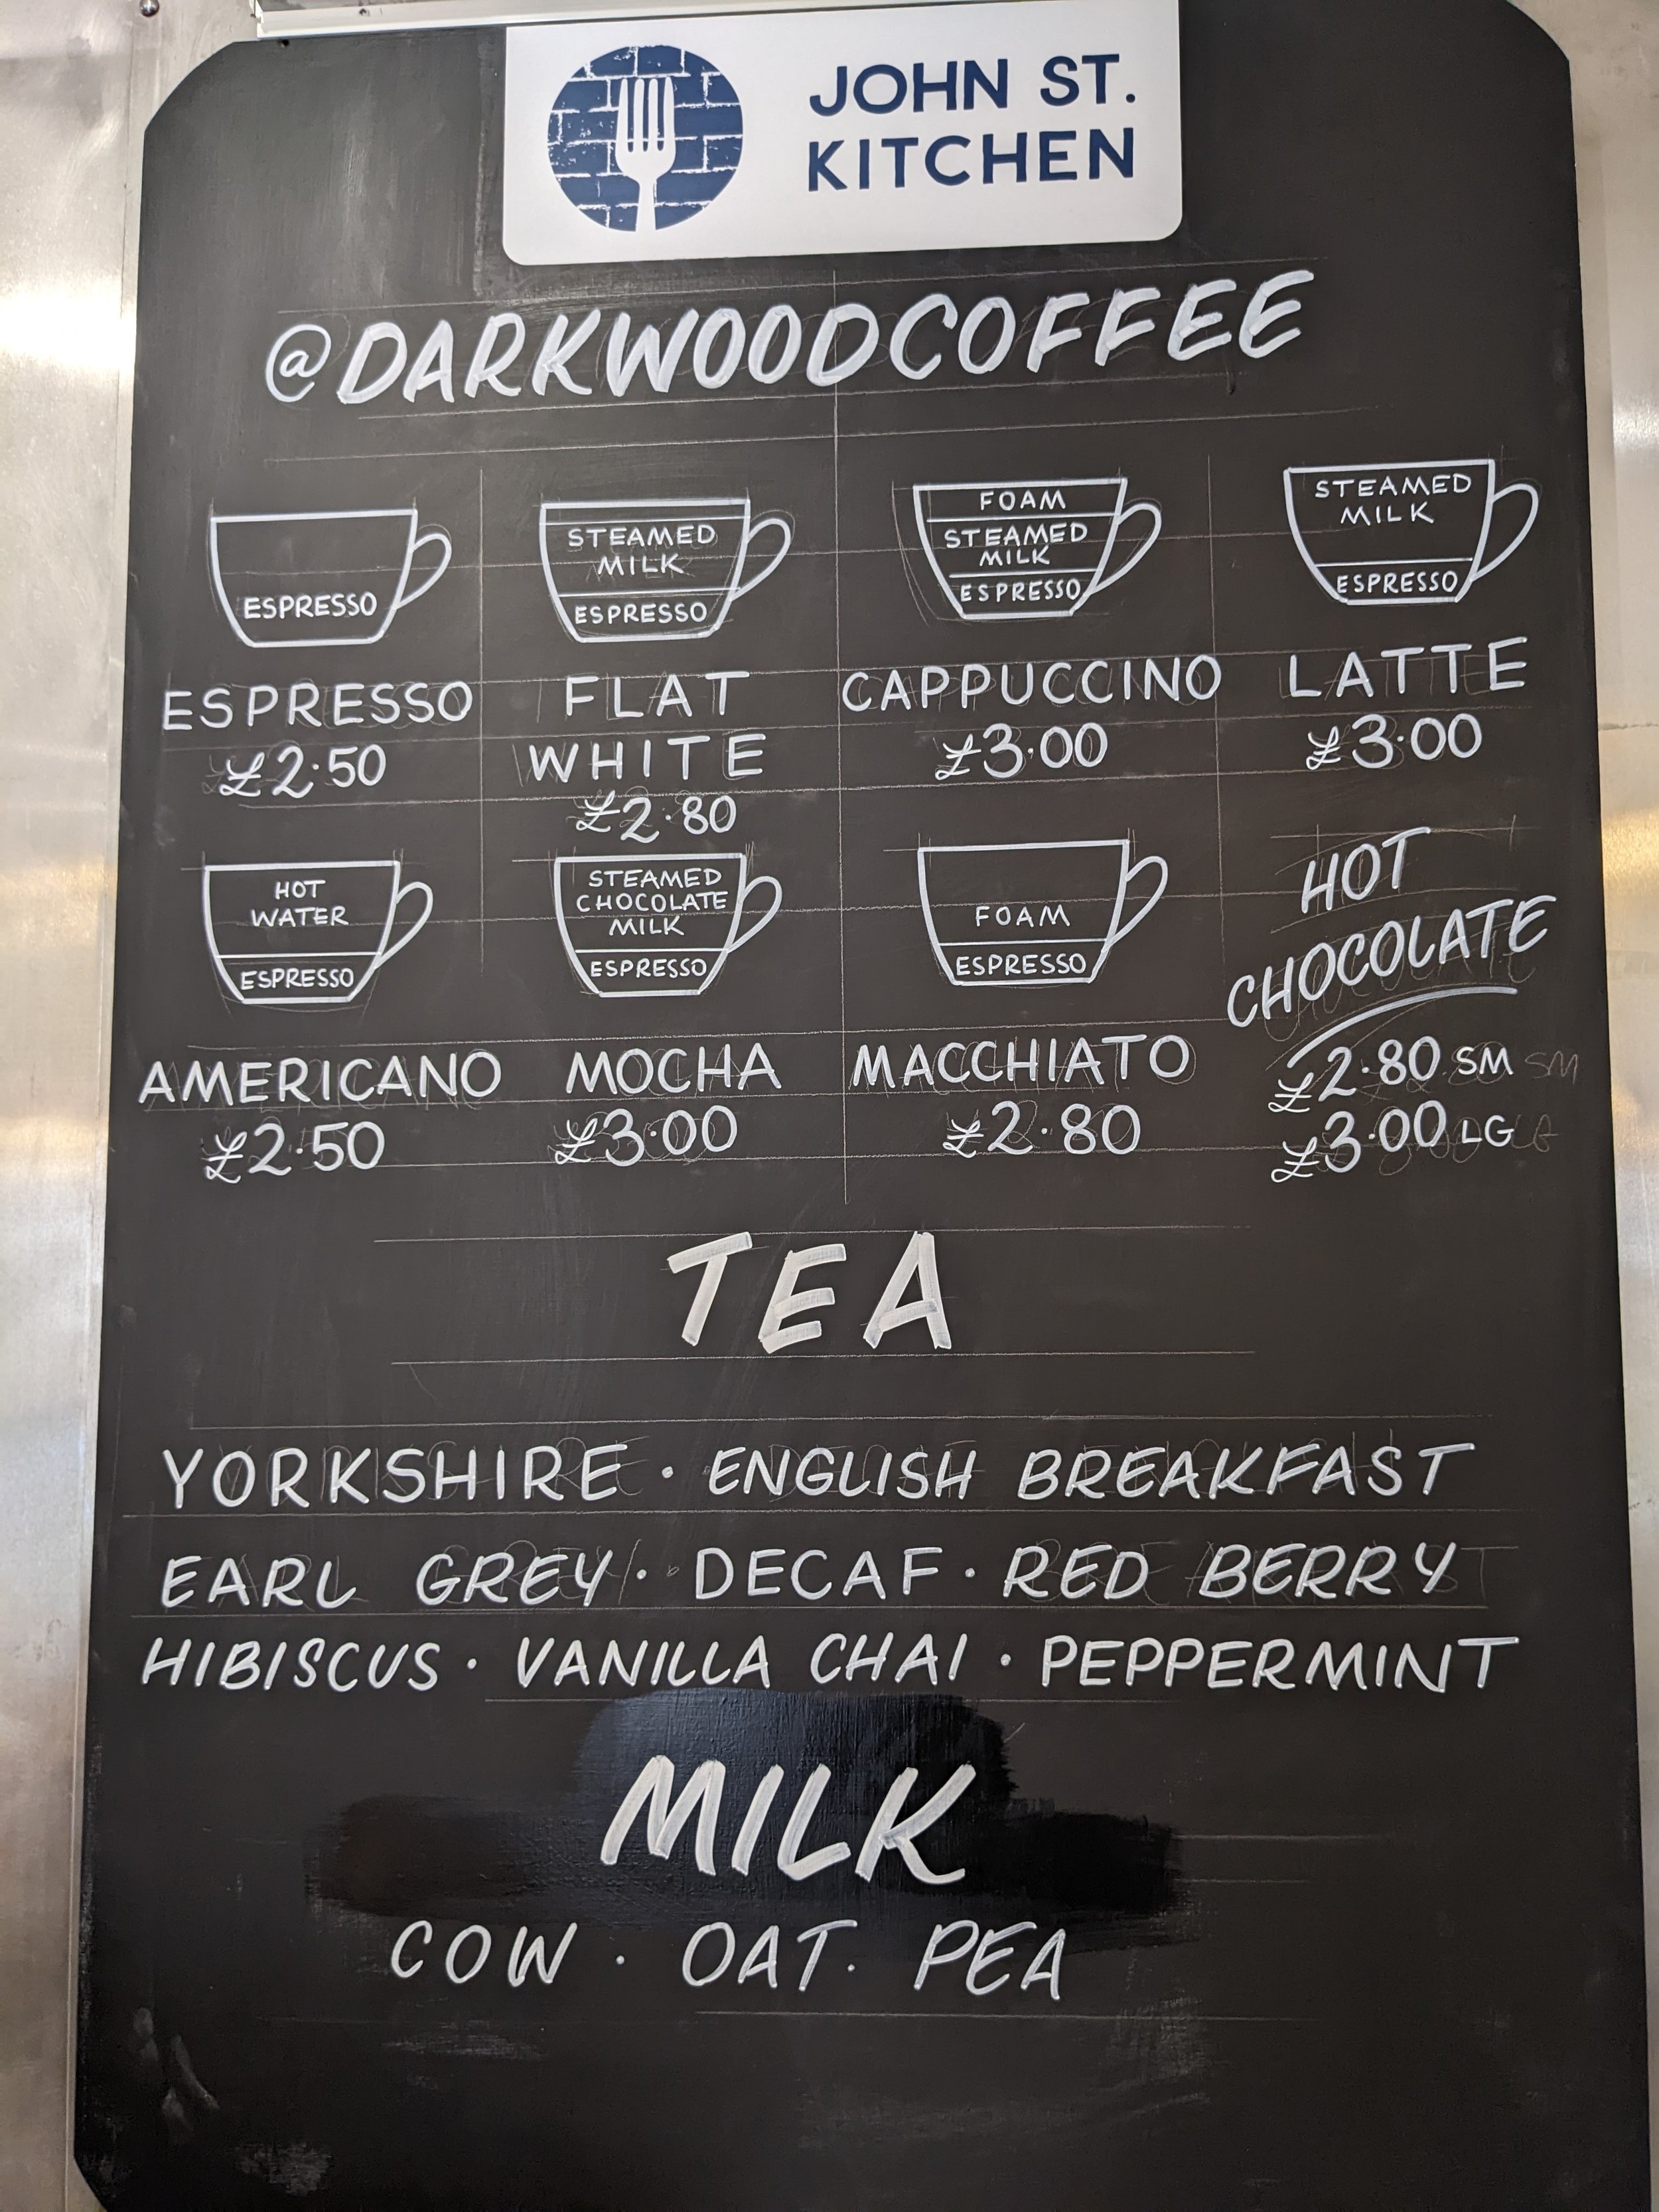 JOHN ST.
KITCHEN
@DARKWOODCOFFEE
ESPRESSO
ESPRESSO
£2.50
STEAMED
MILK
ESPRESSO
FLAT
WHITE
£2.80
FOAM
STEAMED
MILK
ESPRESSO
CAPPUCCINO
£3.00
STEAMED
MILK
ESPRESSO
LATTE
£3.00
HOT
WATER
ESPRESSO
AMERICANO
£2.50
STEAMED
CHOCOLATE
MILK
ESPRESSO
MOCHA
£3.00
FOAM
ESPRESSO
MACCHIATO
£2.80
HOT
CHOCOLATE
£2.80 SM
£3.00 LG
TEA
YORKSHIRE · ENGLISH BREAKFAST
EARL GREY · DECAF · RED BERRY
HIBISCUS · VANILLA CHAI · PEPPERMINT
MILK
COW · OAT · PEA